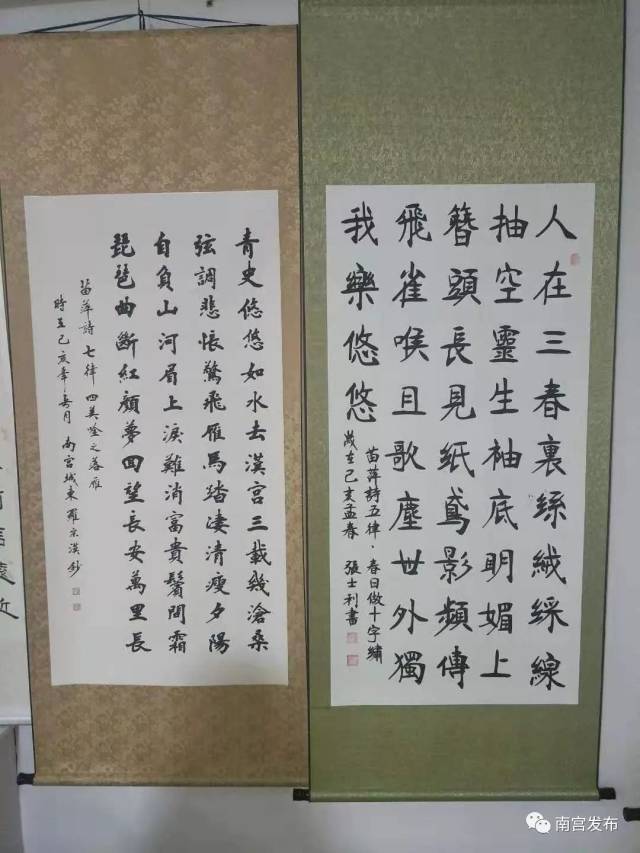 人在三春裏絲絨綵線
抽空靈生袖底明媚上
簪頭長見紙鳶影頻傳
飛雀喉且歌塵世外獨
我樂悠悠
苗萍詩五律·春日做十字繡
歲在己亥孟春 張士利書
青史悠悠如水去漢宮三載幾滄桑
弦調悲悵驚飛雁馬踏淒清瘦夕陽
自負山河眉上淚難消富貴鬢間霜
琵琶曲斷紅顏夢回望長安萬里長
苗萍詩 七律 四美詠之落雁
時在己亥年春月 南宮城東 羅宗漢鈔
南宫发布